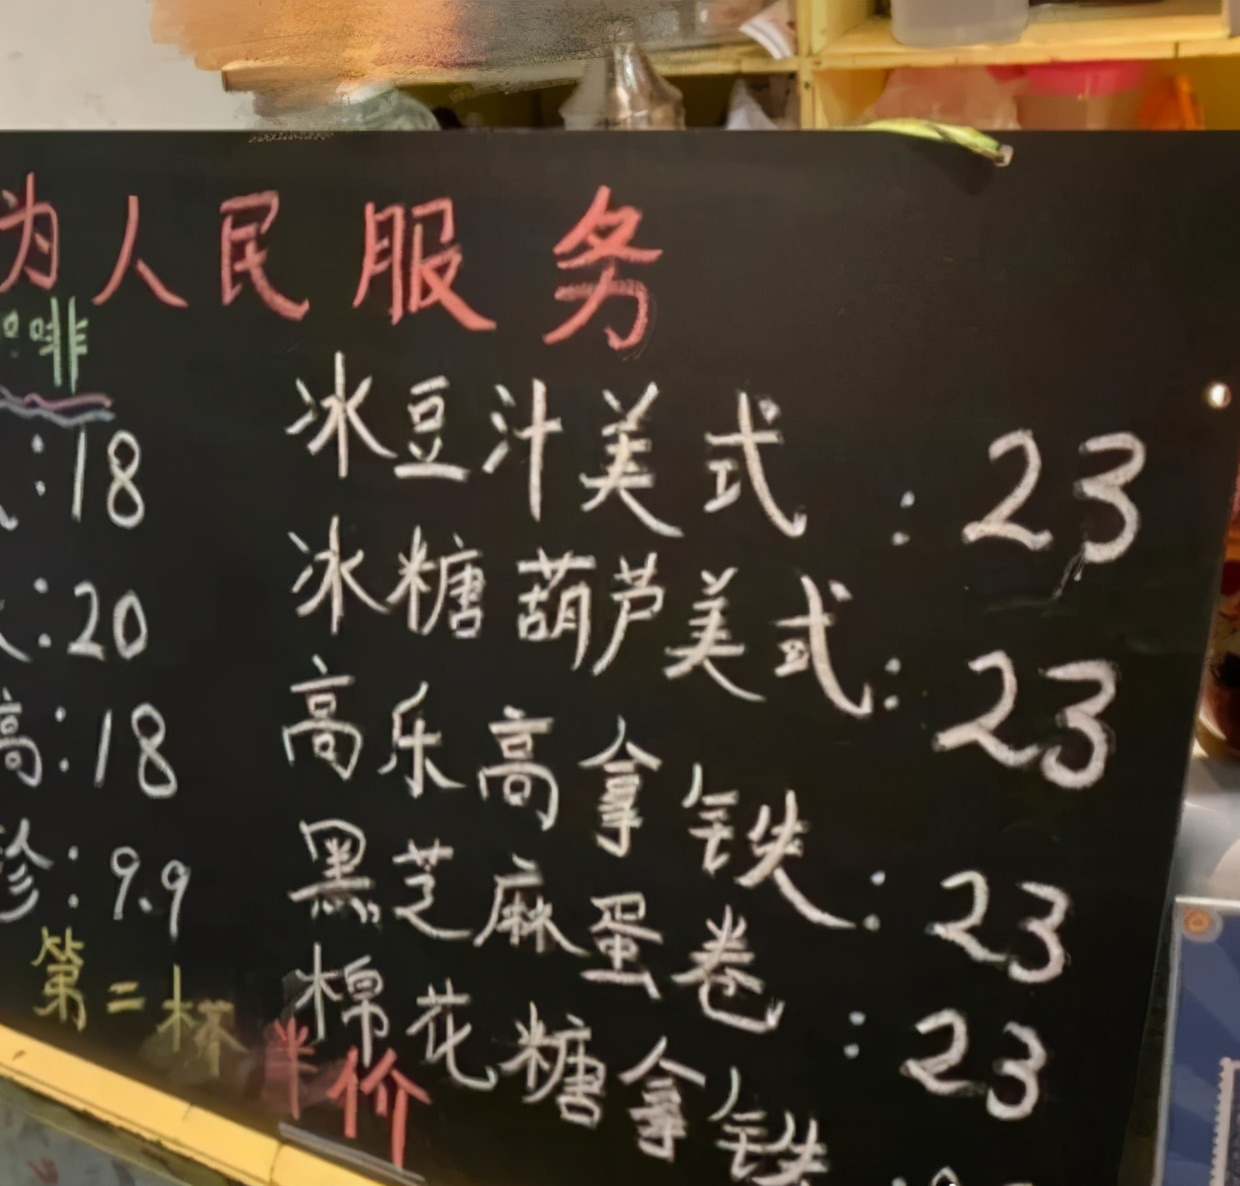 为人民服务
啡
:18
:20
高:18
珍:9.9
第二杯半价
冰豆汁美式:23
冰糖葫芦美式:23
高乐高拿铁:23
黑芝麻蛋卷:23
棉花糖拿铁: